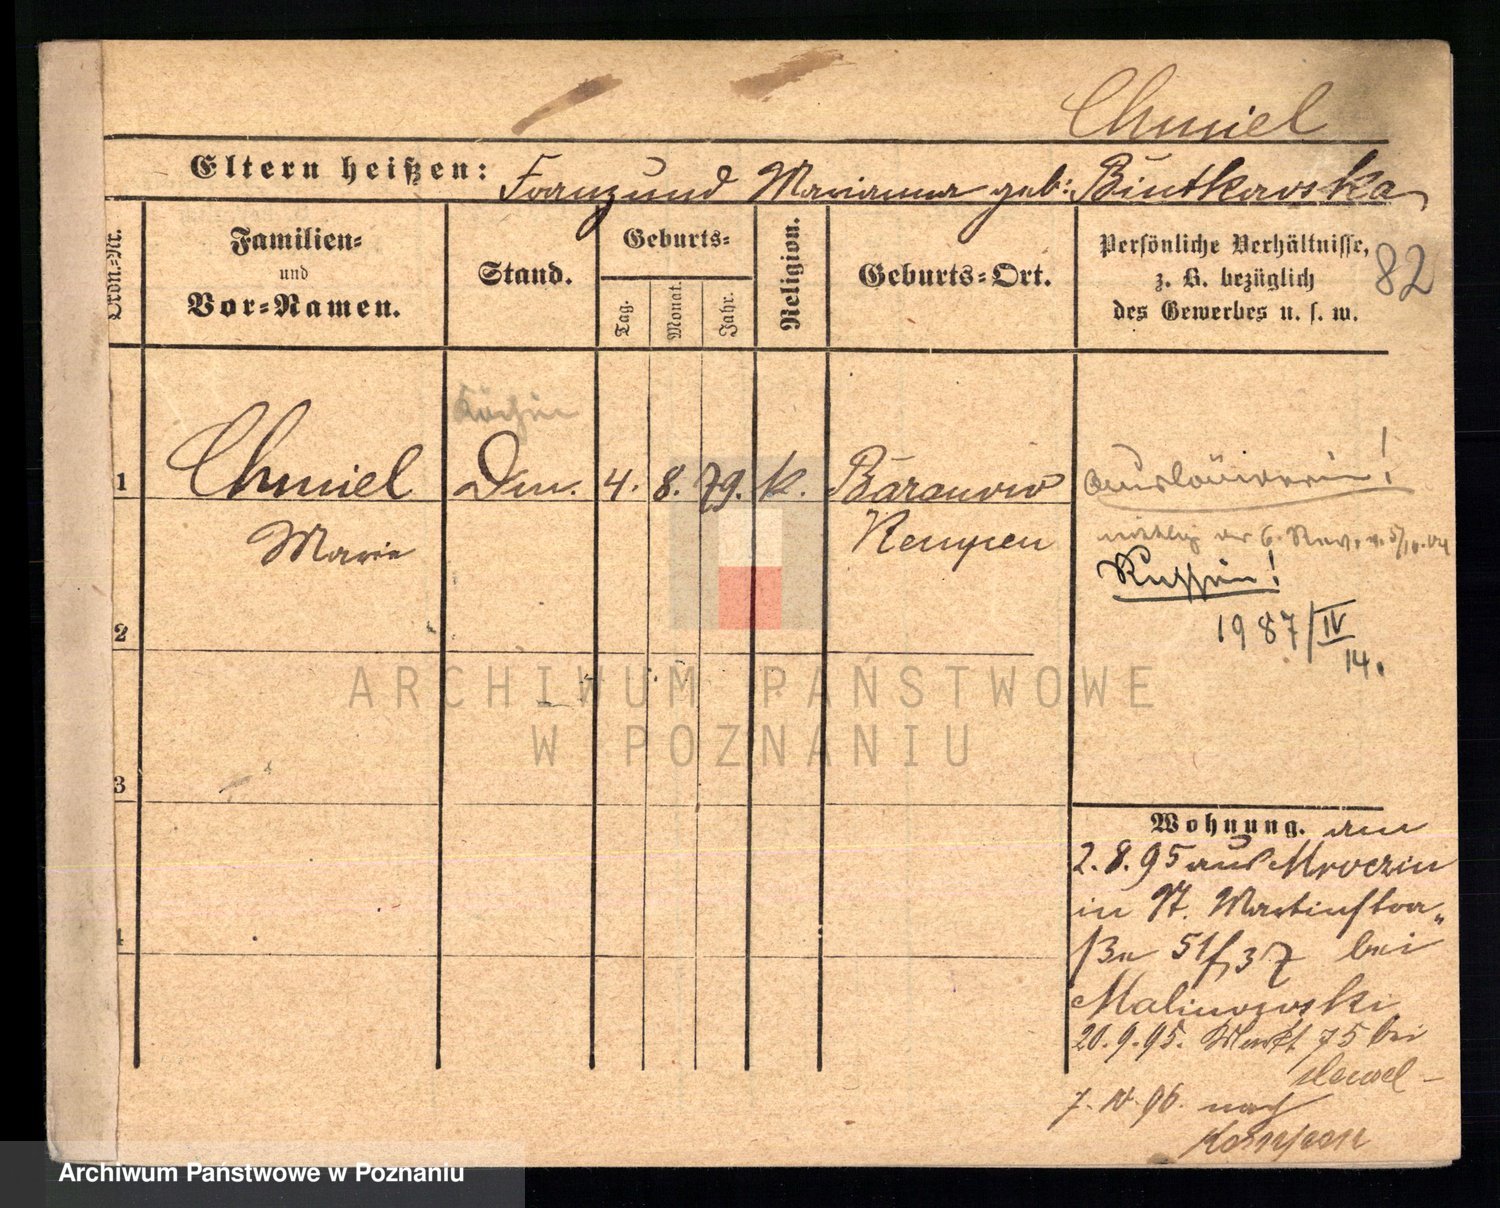 Chmiel
Eltern heißen: Franz und Marianna geb: Biutkowska
Ordn.-Nr.
Familien- und Vor-Namen.
Stand.
Geburts-
Tag.
Monat.
Jahr.
Religion.
Geburts-Ort.
Persönliche Verhältnisse,
z. B. bezüglich
des Gewerbes u. s. w.
82
Köchin
1 Chmiel Dm. 4. 8. 79. k. Baranow
Marie Kempen
Ausländerin!
6. Nov. 5/10.04
Russin!
1987/IV
14.
2
3
4
Wohnung. am
2.8.95 aus Mroczin
in St. Martinstra-
ße 51/37 bei
Malinowski
20.9.95. Markt 75 bei
7.IV.96. nach
Kempen
ARCHIWUM PAŃSTWOWE
W POZNANIU
Archiwum Państwowe w Poznaniu